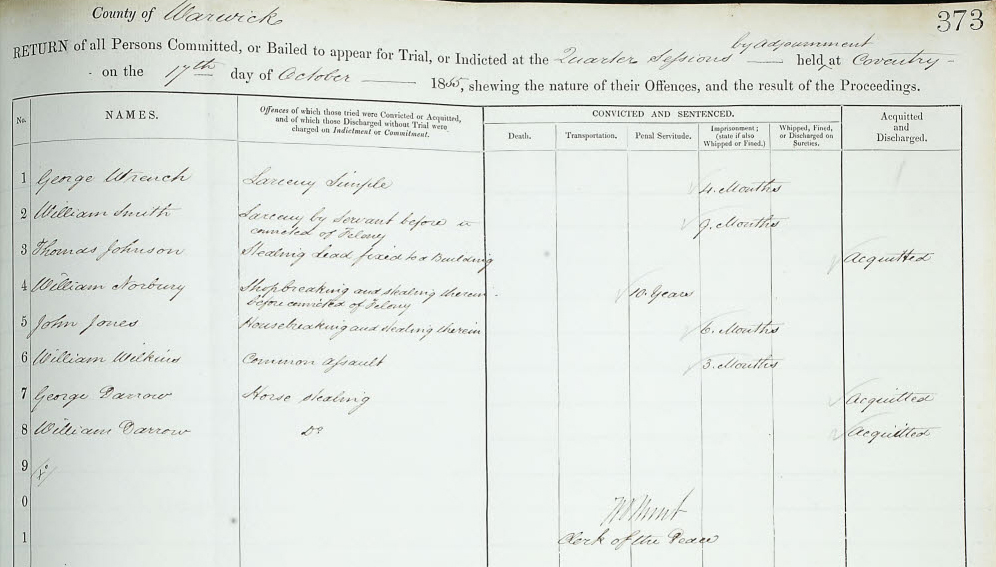 County of Warwick
373
RETURN of all Persons Committed, or Bailed to appear for Trial, or Indicted at the Quarter Sessions by adjournment held at Coventry
on the 17th day of October 1865, shewing the nature of their Offences, and the result of the Proceedings.
No. NAMES. Offences of which those tried were Convicted or Acquitted, and of which those Discharged without Trial were charged on Indictment or Commitment. CONVICTED AND SENTENCED. Acquitted and Discharged.
Death. Transportation. Penal Servitude. Imprisonment; (state if also Whipped or Fined.) Whipped, Fined, or Discharged on Sureties.
1 George Wrench Larceny Simple 4. Months
2 William Smith Larceny by Servant before
convicted of Felony 9. Months
3 Thomas Johnson Stealing Lead fixed to a Building Acquitted
4 William Norbury Shopbreaking and stealing therein
before convicted of Felony 10. Years
5 John Jones Housebreaking and stealing therein 6. Months
6 William Wilkins Common Assault 3. Months
7 George Darrow Horse stealing Acquitted
8 William Darrow Do Acquitted
9
0
1
Clerk of the Peace